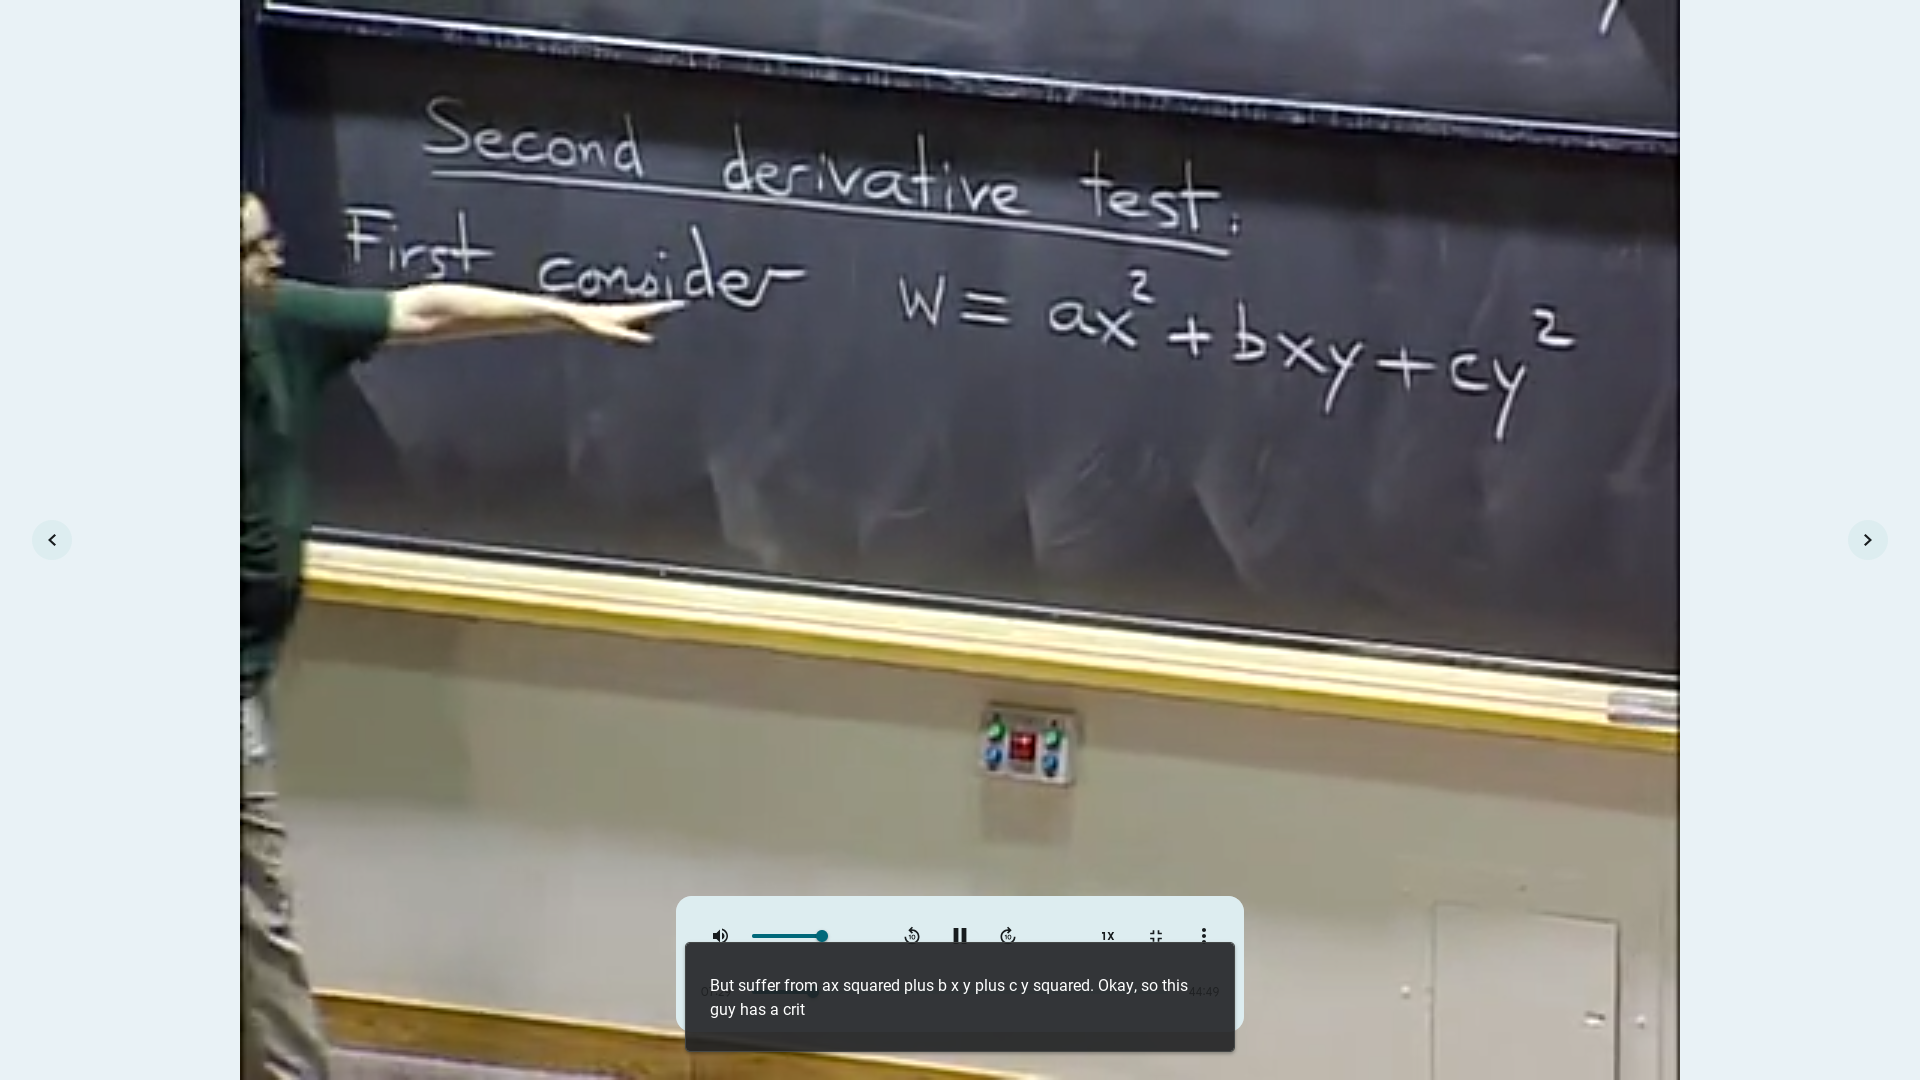 Second derivative test:
First consider w = ax² + bxy + cy²
1X
But suffer from ax squared plus b x y plus c y squared. Okay, so this
guy has a crit